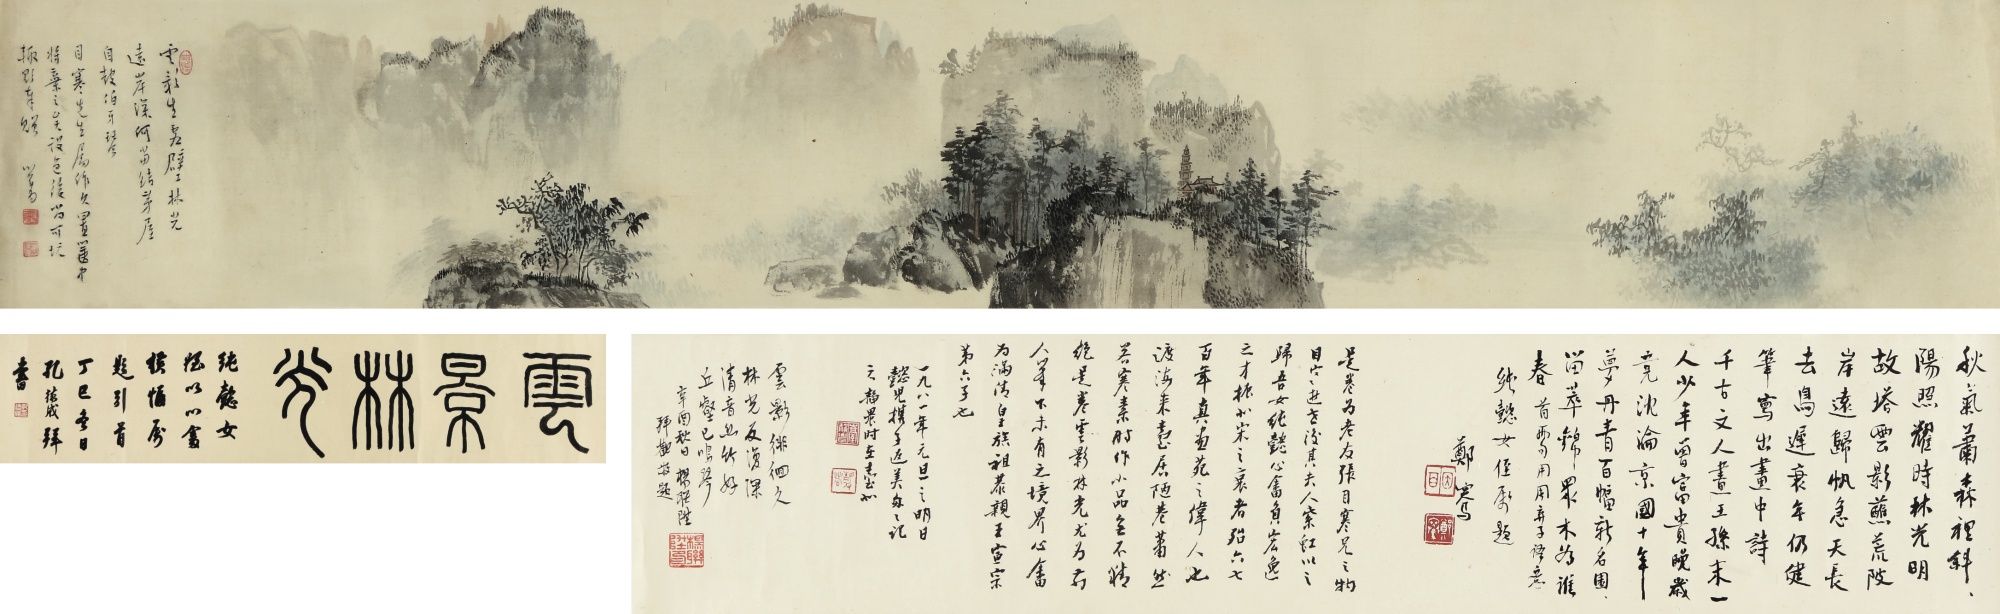 雲影生虛壁林光
遠岸深何當結茅屋
自鼓伯牙琴
目寒先生屬作久置篋中
將棄之矣設色後尚可玩
輒題奉贈
雲景林光
純懿女
姪以心畬
橫幅屬
題引首
丁巳冬日
孔德成拜
書
秋氣蕭森裡斜
陽照耀時林光明
故塔雲影蘸荒陂
岸遠歸帆急天長
去鳥遲衰年仍健
筆寫出畫中詩
千古文人畫王孫末一
人少年曾富貴晚歲
竟沈淪京國十年
夢丹青百幅新名園
留萃錦眾木為誰
春 首兩句用
純懿女侄屬題
鄭騫
是卷為老友張目寒兄之物
目寒逝世後其夫人紫虹以之
歸吾女純懿心畬負宏逸
之才振北宋之衰者殆六七
百年真畫苑之偉人也
渡海來臺居陋巷蕭然
若寒素所作小品無不精
絕是卷雲影林光尤為前
人筆下未有之境界心畬
為滿清皇族祖恭親王宣宗
第六子也
一九八一年元旦之明日
懿兒攜子返美命記
之 靜農時在臺北
雲影徘徊久
林光反復深
清音無竹好
丘壑已鳴琴
辛酉秋日 楊聯陞
拜觀敬題
楊聯陞印